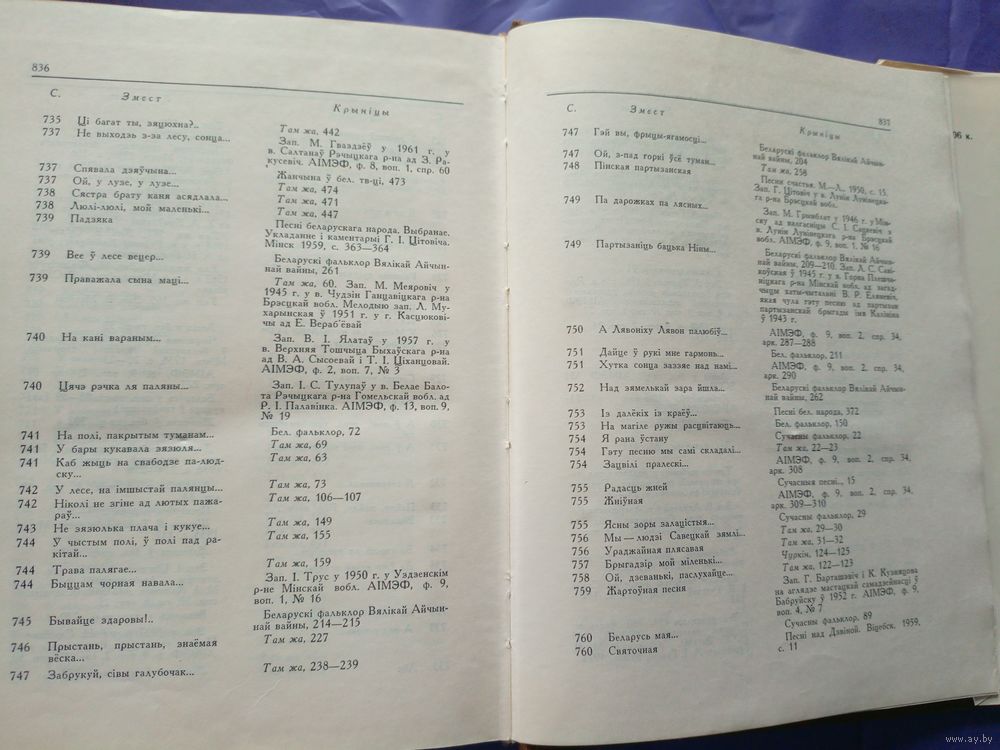 836
С. Змест Крыніцы
735 Ці багат ты, зяцюхна?.. Там жа, 442
737 Не выходзь з-за лесу, сонца... Зап. М. Гваздзёў у 1961 г. у
в. Салтанаў Рэчыцкага р-на ад З. Ра-
кусевіч. АІМЭФ, ф. 8, воп. 1, спр. 60
737 Спявала дзяўчына... Жанчына ў бел. тв-ці, 473
737 Ой, у лузе, у лузе... Там жа, 474
738 Сястра брату каня асядлала... Там жа, 471
738 Люлі-люлі, мой маленькі... Там жа, 447
739 Падзяка Песні беларускага народа. Выбранае.
Укладанне і каментарыі Г. І. Цітовіча.
Мінск 1959, с. 363—364
739 Вее ў лесе вецер... Беларускі фальклор Вялікай Айчын-
най вайны, 261
739 Праважала сына маці... Там жа, 60. Зап. М. Меяровіч у
1945 г. у в. Чудзін Ганцавіцкага р-на
Брэсцкай вобл. Мелодыю зап. Л. Му-
харынская ў 1951 у г. Касцюкові-
чы ад Е. Вераб'ёвай
740 На кані вараным... Зап. В. І. Ялатаў у 1957 г. у
в. Верхняя Тошчыца Быхаўскага р-на
ад В. А. Сысоевай і Т. І. Ціханцовай.
АІМЭФ, ф. 2, воп. 7, № 3
740 Цячэ рэчка ля паляны... Зап. І. С. Тулупаў у в. Белае Бало-
та Рэчыцкага р-на Гомельскай вобл. ад
Р. І. Палавінка. АІМЭФ, ф. 13, воп. 9,
№ 19
741 На полі, пакрытым туманам... Бел. фальклор, 72
741 У бары кукавала зязюля... Там жа, 69
741 Каб жыць на свабодзе па-люд- Там жа, 63
ску...
742 У лесе, на імшыстай палянцы... Там жа, 73
742 Ніколі не згіне ад лютых пажа- Там жа, 106—107
раў...
743 Не зязюлька плача і кукуе... Там жа, 149
744 У чыстым полі, ў полі пад ра- Там жа, 155
кітай...
744 Трава палягае... Там жа, 159
744 Быццам чорная навала... Зап. І. Трус у 1950 г. у Уздзенскім
р-не Мінскай вобл. АІМЭФ, ф. 9,
воп. 1, № 16
745 Бывайце здаровы!.. Беларускі фальклор Вялікай Айчын-
най вайны, 214—215
746 Прыстань, прыстань, знаёмая Там жа, 227
вёска...
747 Забрукуй, сівы галубочак... Там жа, 238—239
837
С. Змест Крыніцы
747 Гэй вы, фрыцы-ягамосці... Беларускі фальклор Вялікай Айчын-
най вайны, 204
747 Ой, з-пад горкі ўсё туман... Там жа, 258
748 Пінская партызанская Песни счастья. М.—Л., 1950, с. 15.
Зап. Г. Цітовіч у в. Лунін Лунінец-
кага р-на Брэсцкай вобл.
749 Па дарожках па лясных.. Зап. М. Грынблат у 1946 г. у Мін-
ску ад калгасніцы С. І. в
в. Лунін Лунінецкага р-на Брэсцкай
вобл. АІМЭФ, ф. 9, воп. 1, № 16
749 Партызаніць бацька Ніны... Беларускі фальклор Вялікай Айчын-
най вайны, 209—210. Зап. Л. С.
ў 1945 у в. Горна
р-на Мінскай вобл. ад загад-
чыцы хаты-чытальні В. Р.
якая чула гэту песню ад партызан
партызанскай брыгады імя Калініна
ў 1943 г.
750 А Лявоніху Лявон палюбіў... АІМЭФ, ф. 9, воп. 2, спр. 34,
арк. 287—288
751 Дайце ў рукі мне гармонь... Бел. фальклор, 211
751 Хутка сонца заззяе над намі... АІМЭФ, ф. 9, воп. 2, спр. 34,
арк. 290
752 Над зямелькай зара йшла... Беларускі фальклор Вялікай Айчын-
най вайны, 262
753 Із далёкіх із краёў... Песні бел. народа, 372
753 На магіле ружы расцвітаюць... Бел. фальклор, 150
754 Я рана ўстану Сучасны фальклор, 22
754 Гэту песню мы самі складалі.. Там жа, 22—23
754 Зацвілі пралескі.. АІМЭФ, ф. 9, воп. 2, спр. 34,
арк. 308
755 Радасць жней Сучасныя песні.., 15
755 Жніўная АІМЭФ, ф. 9, воп. 2, спр. 34,
арк. 309—310
755 Ясны зоры залацістыя... Сучасны фальклор, 29
756 Мы — людзі Савецкай зямлі... Там жа, 29—30
756 Ураджайная плясавая Там жа, 31—32
757 Брыгадзір мой міленькі... Чуркін, 124—125
758 Ой, дзеванькі, паслухайце... Там жа, 122—123
759 Жартоўная песня Зап. Г. Барташэвіч і К. Кузняцова
на аглядзе мастацкай самадзейнасці ў
Бабруйску ў 1952 г. АІМЭФ, ф. 9,
воп. 4, № 7
760 Беларусь мая... Сучасны фальклор, 89
760 Святочная Песні над Дзвіной. Віцебск, 1959,
с. 11
96 к.
www.ay.by